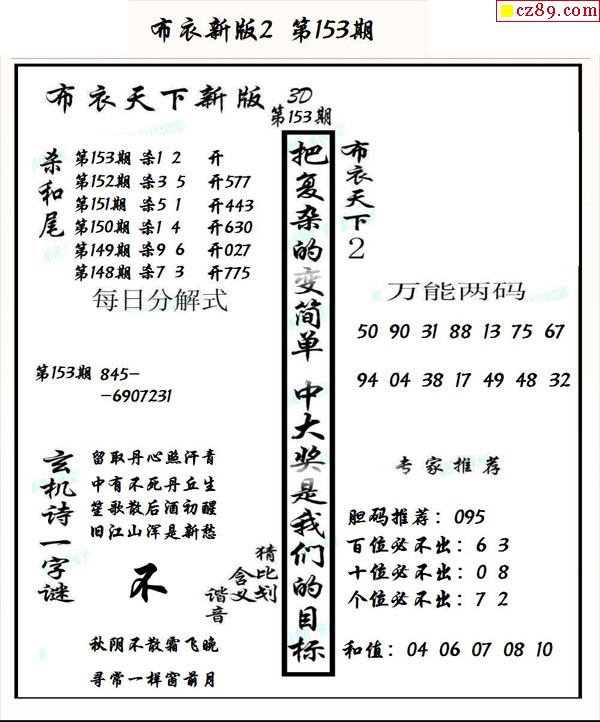 cz89.com
布衣新版2 第153期
布衣天下新版 3D
第153期
杀和尾
第153期 杀1 2 开
第152期 杀3 5 开577
第151期 杀5 1 开443
第150期 杀1 4 开630
第149期 杀9 6 开027
第148期 杀7 3 开775
每日分解式
第153期 845-
-6907231
玄机诗一字谜
留取丹心照汗青
中有不死丹丘生
笙歌散后酒初醒
旧江山浑是新愁
不
猜比划
含义
谐音
秋阴不散霜飞晚
寻常一样窗前月
把复杂的变简单 中大奖是我们的目标
布衣天下2
万能两码
50 90 31 88 13 75 67
94 04 38 17 49 48 32
专家推荐
胆码推荐：095
百位必不出：6 3
十位必不出：0 8
个位必不出：7 2
和值：04 06 07 08 10